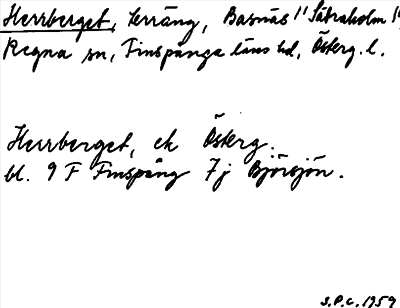 Herrberget, terräng, Basnäs 1/1 Sätraholm 1/1
Regna sn, Finspånga läns hd, Österg. l.
Herrberget, ek Österg.
bl. 9 F Finspång 7j Björsjön.
S.P.C. 1959